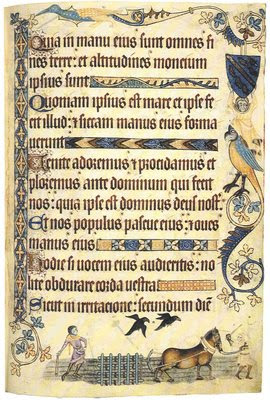 Quia in manu eius sunt omnes fi
nes terre: et altitudines moncium
ipsius sunt
Quoniam ipsius est mare et ipse fe
cit illud: et siccam manus eius forma
uerunt
Uenite adoremus et procidamus et
ploremus ante dominum qui fecit
nos: quia ipse est dominus deus nost
Et nos populus pascue eius: et oues
manus eius
Hodie si uocem eius audieritis: no
lite obdurare corda uestra
Sicut in irritacione: secundum diē